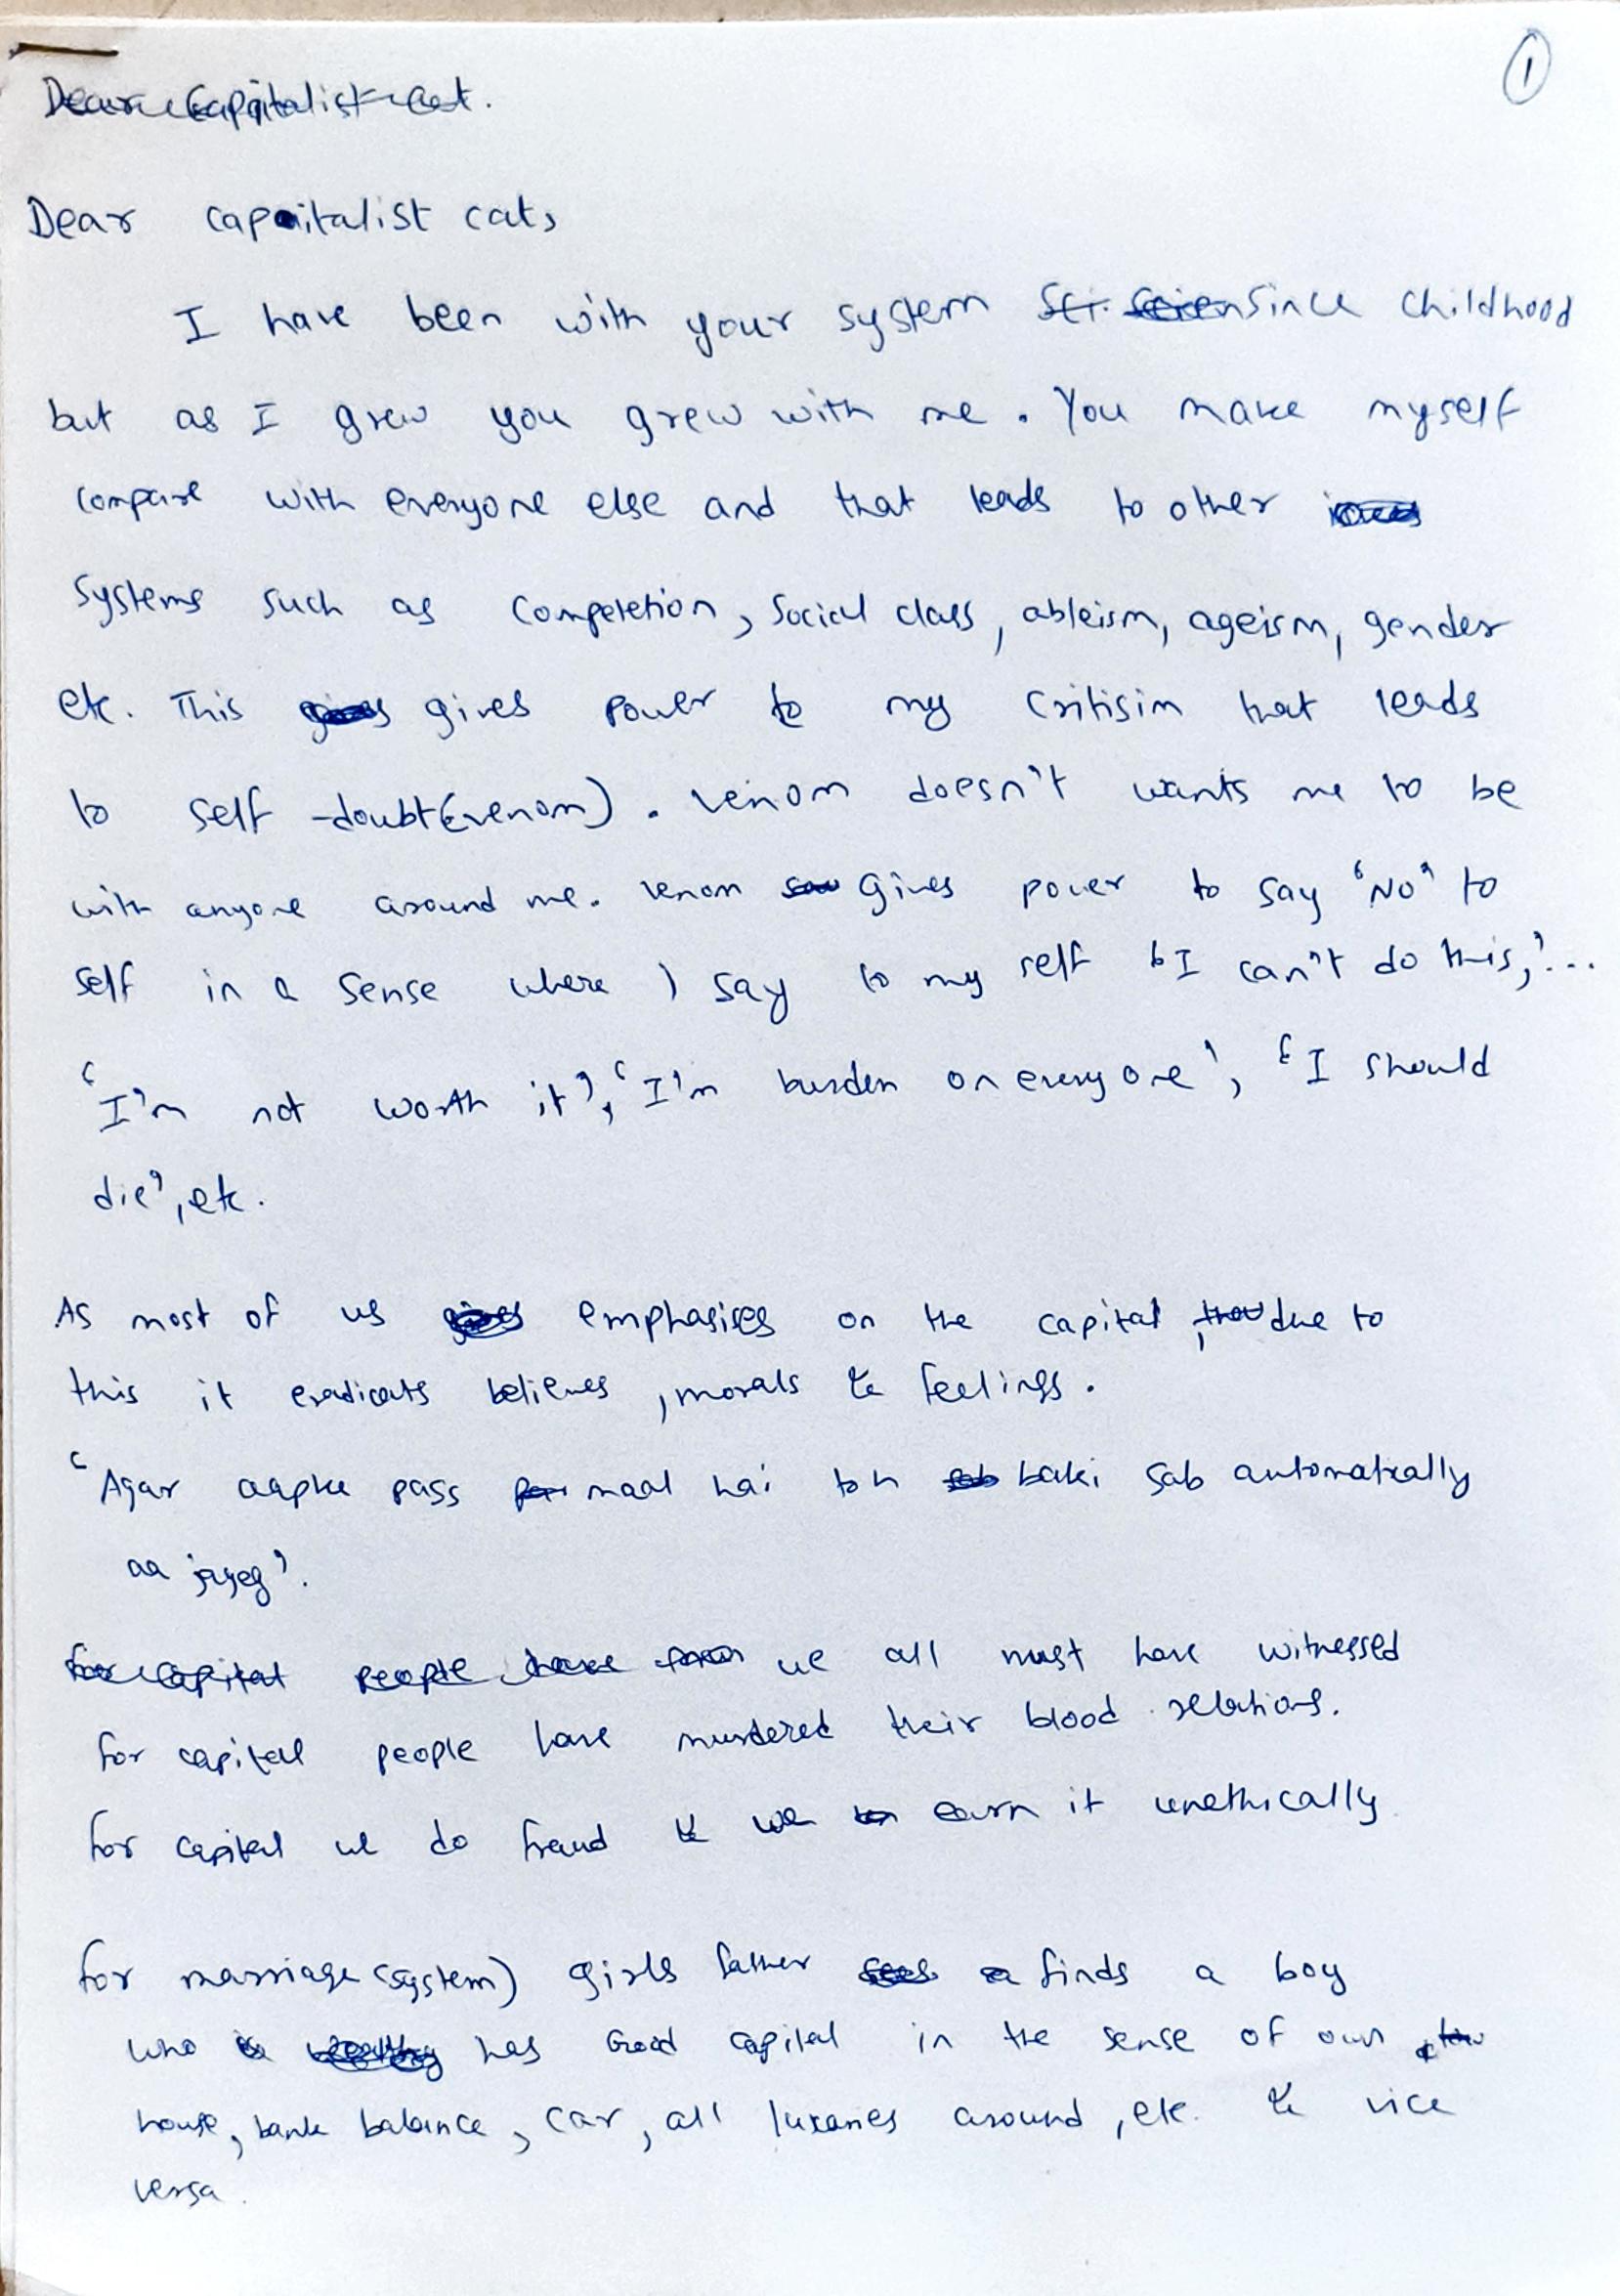 1
Dear Capitalist Cat.
Dear capitalist cat,
I have been with your system since childhood
but as I grew you grew with me. You make myself
compare with everyone else and that leads to other
systems such as Competetion, Social class, ableism, ageism, gender
etc. This gives power to my Critisim that leads
to self-doubt(venom). Venom doesn't wants me to be
with anyone around me. Venom gives power to say 'No' to
self in a sense where I say to my self 'I can't do this,'...
'I'm not worth it', 'I'm burden on everyone', 'I should
die', etc.
As most of us emphasises on the capital, due to
this it eradicats believes, morals & feelings.
'Agar aapke pass maal hai toh baki sab automatically
aa jayeg'.
for capital people have we all must have witnessed
for capital people have murdered their blood relations.
for capital we do fraud & we earn it unethically
for marriage (system) girls father finds a boy
who has Good capital in the sense of own
house, bank balance, car, all luxaries around, etc. & vice
versa.